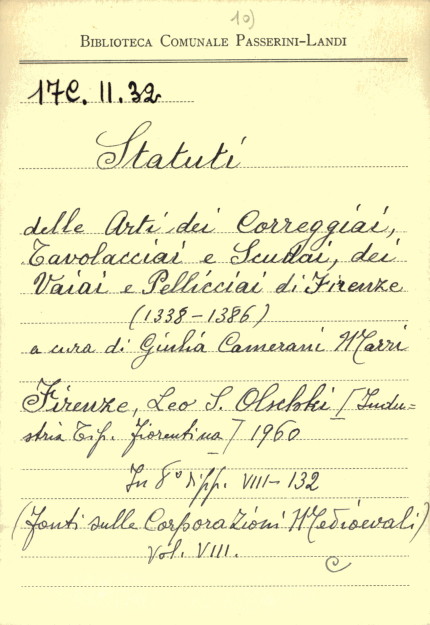 10)
BIBLIOTECA COMUNALE PASSERINI-LANDI
17C. II. 32
Statuti
delle Arti dei Correggiai,
Tavolacciai e Scudai, dei
Vaiai e Pellicciai di Firenze
(1338-1386)
a cura di Giulia Camerani Marri
Firenze, Leo S. Olschki [Indu-
stria Tip. Fiorentina] 1960
In 8° di pp. VIII-132
(Fonti sulle Corporazioni Medioevali)
Vol. VIII.
C